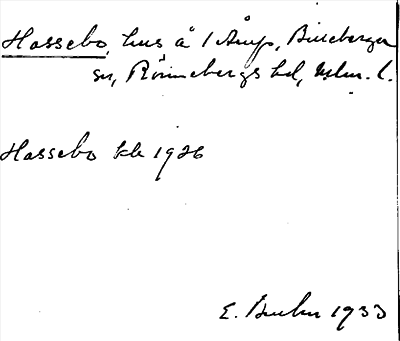 Hassebo, hus å 1 Åmp, Billeberga
sn, Rönnebergs hd, Mlm. l.
Hassebo kb 1926
E. 1933